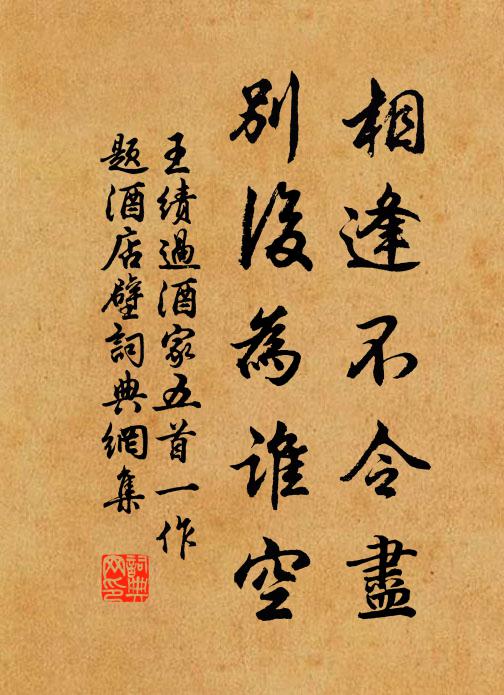 相逢不令盡
別後為誰空
王績過酒家五首一作
題酒店壁詞典網集
詞典網印